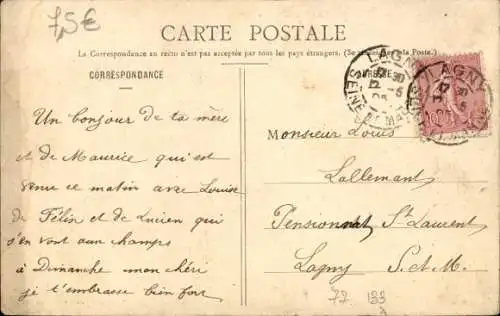 7,5€
CARTE POSTALE
La Correspondance au recto n'est pas acceptée par tous les pays étrangers. (Se à la Poste.)
CORRESPONDANCE
ADRESSE
LAGNY
SEINE ET MARNE
LAGNY
Un bonjour de ta mère
et de Maurice qui est
venu ce matin avec Louise
de Félin et de Lucien qui
s'en vont aux champs
à Dimanche mon chéri
je t'embrasse bien fort
Monsieur Louis
Lallemant
Pensionnat St Laurent
Lagny S. et M.
77 133